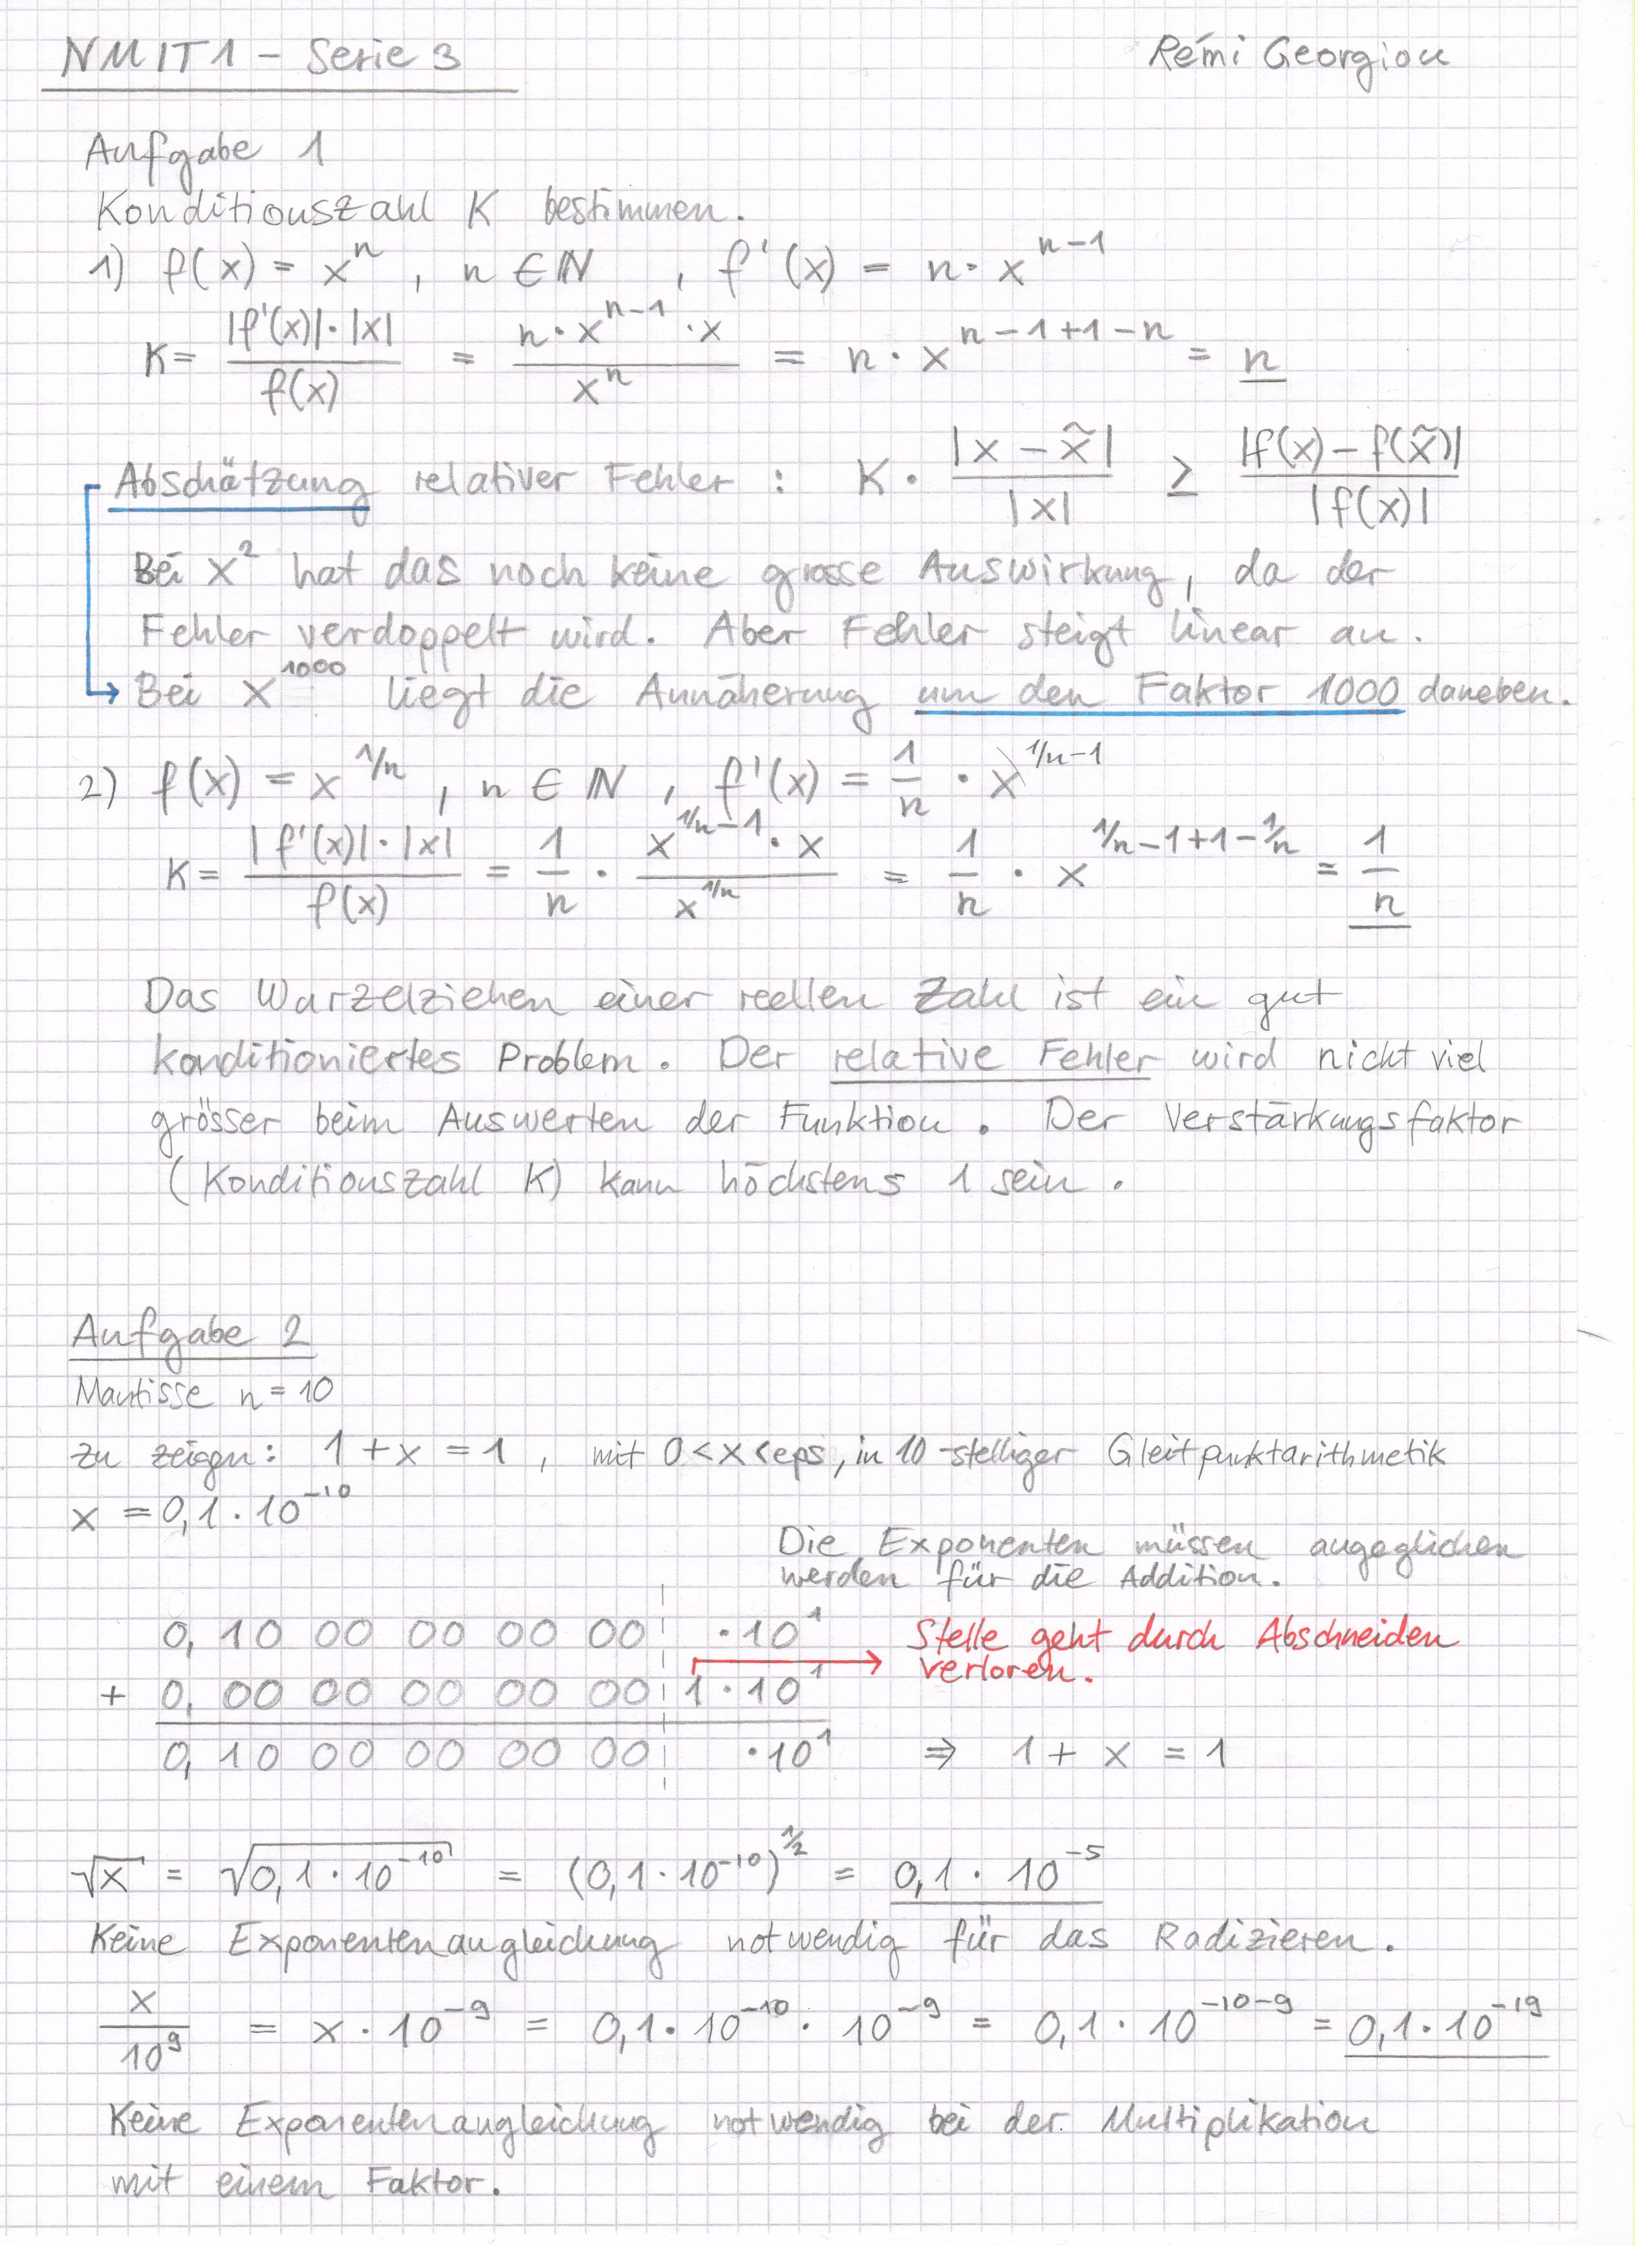 NMIT1 – Serie 3 Rémi Georgiou
Aufgabe 1
Konditionszahl K bestimmen.
1) f(x) = x^n , n ∈ ℕ , f'(x) = n · x^(n-1)
K = |f'(x)|·|x| / f(x) = n · x^(n-1) · x / x^n = n · x^(n-1+1-n) = n
Abschätzung relativer Fehler : K · |x - x̃| / |x| ≥ |f(x) - f(x̃)| / |f(x)|
Bei x² hat das noch keine grosse Auswirkung, da der
Fehler verdoppelt wird. Aber Fehler steigt linear an.
Bei x^1000 liegt die Annäherung um den Faktor 1000 daneben.
2) f(x) = x^(1/n) , n ∈ ℕ , f'(x) = 1/n · x^(1/n-1)
K = |f'(x)|·|x| / f(x) = 1/n · x^(1/n-1) · x / x^(1/n) = 1/n · x^(1/n-1+1-1/n) = 1/n
Das Wurzelziehen einer reellen Zahl ist ein gut
konditioniertes Problem. Der relative Fehler wird nicht viel
grösser beim Auswerten der Funktion. Der Verstärkungsfaktor
(Konditionszahl K) kann höchstens 1 sein.
Aufgabe 2
Mantisse n = 10
zu zeigen: 1 + x = 1 , mit 0 < x < eps, in 10-stelliger Gleitpunktarithmetik
x = 0,1 · 10^-10
Die Exponenten müssen angeglichen
werden für die Addition.
0, 10 00 00 00 00 · 10^1
Stelle geht durch Abschneiden
verloren.
+ 0, 00 00 00 00 00 1 · 10^1
0, 10 00 00 00 00 · 10^1 ⇒ 1 + x = 1
√x = √(0,1 · 10^-10) = (0,1 · 10^-10)^(1/2) = 0,1 · 10^-5
Keine Exponentenangleichung notwendig für das Radizieren.
x / 10^9 = x · 10^-9 = 0,1 · 10^-10 · 10^-9 = 0,1 · 10^(-10-9) = 0,1 · 10^-19
Keine Exponentenangleichung notwendig bei der Multiplikation
mit einem Faktor.